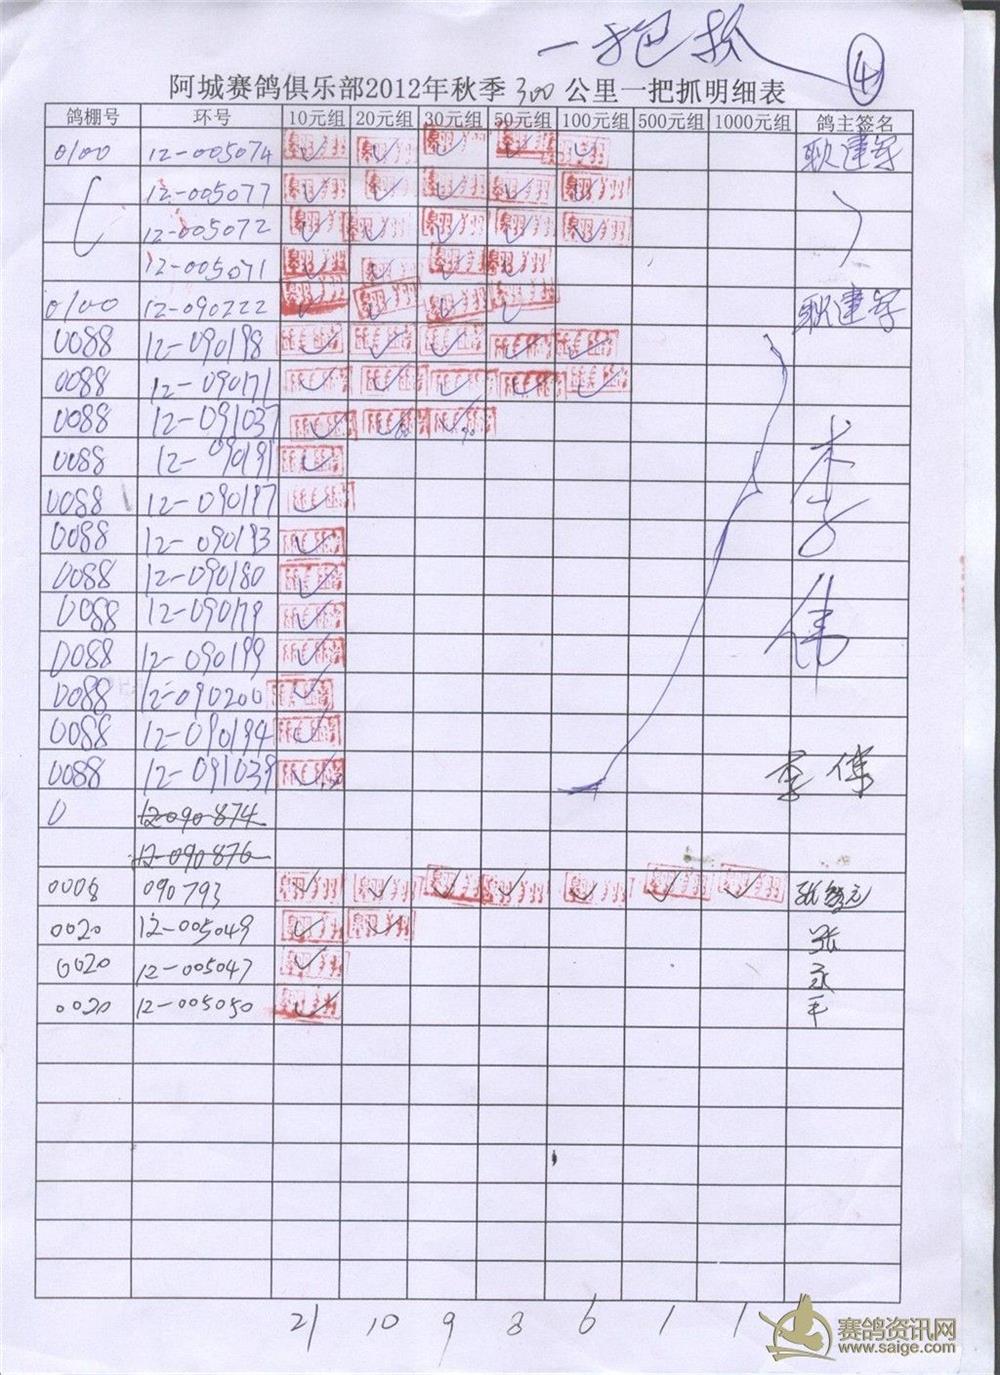 一把抓 ④
阿城赛鸽俱乐部2012年秋季300公里一把抓明细表
鸽棚号 环号 10元组 20元组 30元组 50元组 100元组 500元组 1000元组 鸽主签名
0100 12-005074 耿建军
12-005077
12-005072
12-005071
0100 12-090222 耿建军
0088 12-090198
0088 12-090171
0088 12-091037
0088 12-090191
0088 12-090197
0088 12-090193
0088 12-090180
0088 12-090179
0088 12-090199
0088 12-090200
0088 12-090194
0088 12-091039
李伟
李伟
0 12-090874
12-090876
0008 090793
0020 12-005049 张
0020 12-005047 永
0020 12-005050 平
21 10 9 8 6 1 1
赛鸽资讯网
www.saige.com